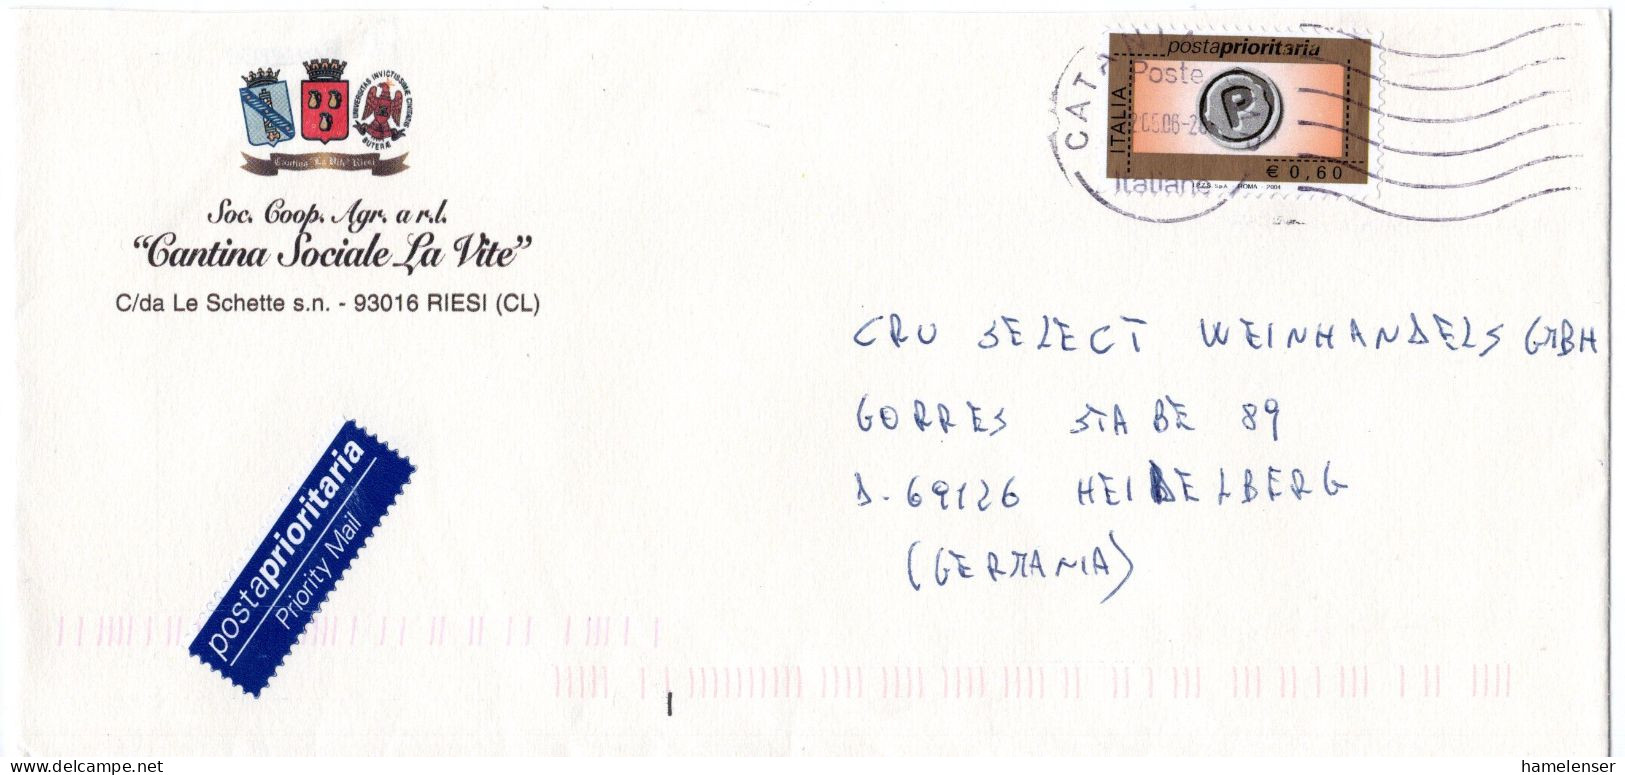 UNIVERSITAS INVICTISSIMÆ CIVITATIS BUTERÆ
Cantina "La Vite" Riesi
Soc. Coop. Agr. a r.l.
"Cantina Sociale La Vite"
C/da Le Schette s.n. - 93016 RIESI (CL)
postaprioritaria
ITALIA
P
€ 0,60
I.P.Z.S. S.p.A. - ROMA - 2004
Poste
Italiane
CRU SELECT WEINHANDELS GMBH
GORRES STABE 89
D-69126 HEIDELBERG
(GERMANIA)
postaprioritaria
Priority Mail
www.delcampe.net
hamelenser